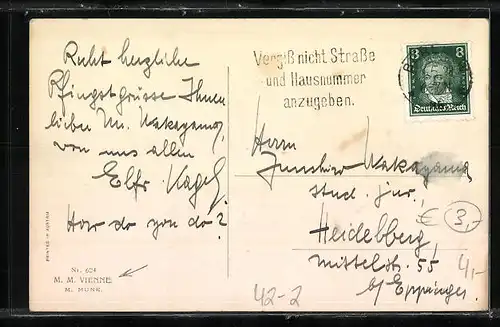 Recht herzliche
Pfingstgrüsse Ihnen
lieben Mr. Nakayama,
von uns allen
Elfr. Nagel.
How do you do?
PRINTED IN AUSTRIA
Nr. 624
M. M. VIENNE
M. MUNK.
Vergiß nicht Straße
und Hausnummer
anzugeben.
8 8
Deutsches Reich
Herrn
Nakayama
stud. jur.,
€ 3,-
Heidelberg,
Mittelstr. 55
4,-
b/ Eppinger.
42-2